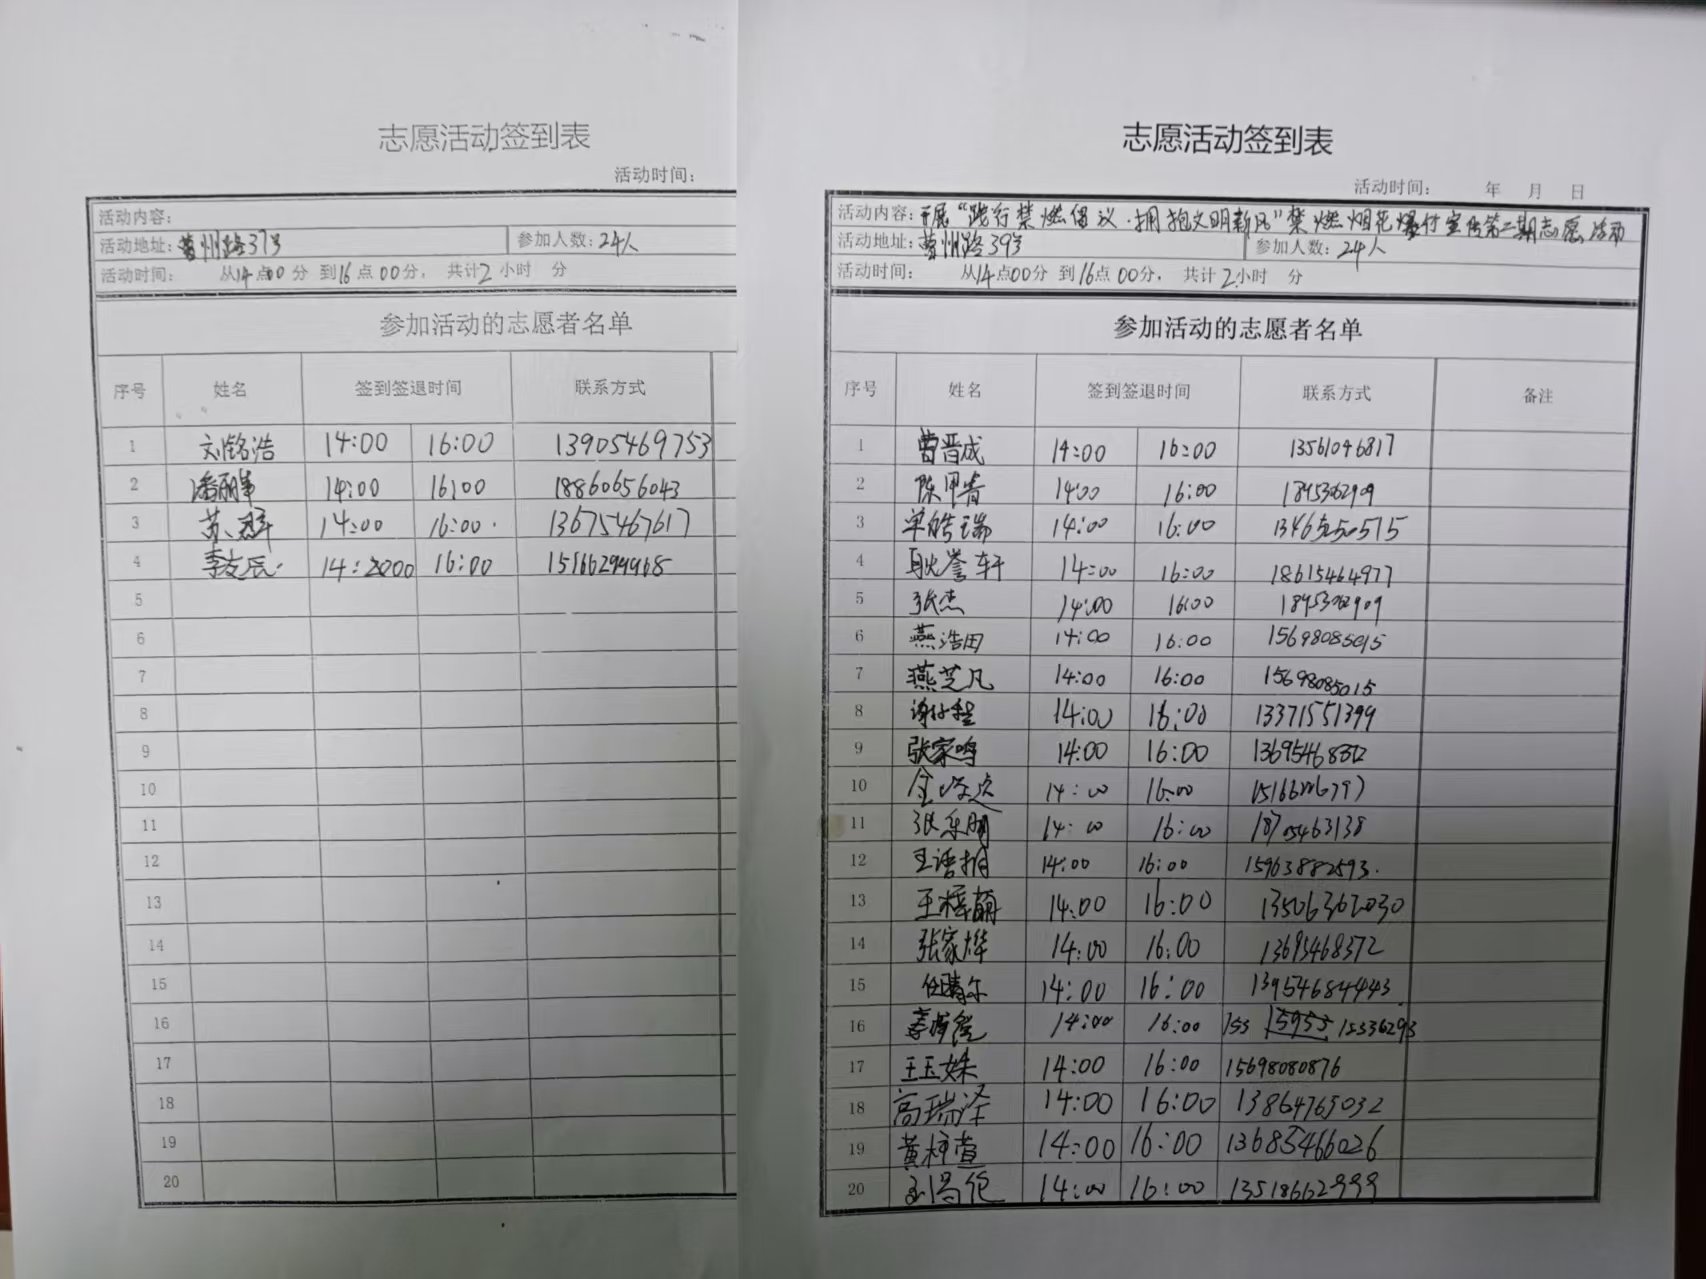 志愿活动签到表
活动时间：
活动内容：
活动地址：苏州路37号 参加人数：24人
活动时间： 从14点00分 到16点00分， 共计2小时 分
参加活动的志愿者名单
序号 姓名 签到签退时间 联系方式
1 刘铭浩 14:00 16:00 13905469753
2 潘丽华 14:00 16:00 18860656043
3 苏 14:00 16:00 13675467617
4 李友辰 14:2000 16:00
5
6
7
8
9
10
11
12
13
14
15
16
17
18
19
20
志愿活动签到表
活动时间： 年 月 日
活动内容：开展“践行禁燃倡议·拥抱文明新风”禁燃烟花爆竹宣传第二期志愿活动
活动地址：苏州路39号 参加人数：24人
活动时间： 从14点00分 到16点00分， 共计2小时 分
参加活动的志愿者名单
序号 姓名 签到签退时间 联系方式 备注
1 曹晋成 14:00 16:00 13561046817
2 陈甲青 14:00 16:00
3 单皓瑞 14:00 16:00
4 耿誉轩 14:00 16:00 18615464977
5 张杰 14:00 16:00
6 燕浩田 14:00 16:00 15698085015
7 燕芝凡 14:00 16:00 15698085015
8 14:00 16:00 13371551399
9 张家鸣 14:00 16:00
10 14:00 16:00
11 张乐朋 14:00 16:00 18705463138
12 王语 14:00 16:00 15963882593
13 王梓萌 14:00 16:00 13506362030
14 张家烨 14:00 16:00 13695468372
15 任晴尔 14:00 16:00 13954684443
16 14:00 16:00
17 王玉姝 14:00 16:00 15698080876
18 高瑞泽 14:00 16:00 13864765032
19 黄梓萱 14:00 16:00 13685466026
20 14:00 16:00 13518662999